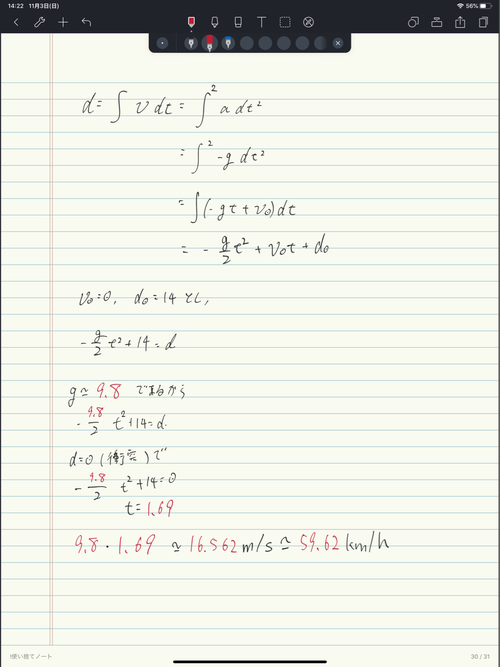 14:22 11月3日(日)
56%
d = ∫ v dt = ∫² a dt²
= ∫² -g dt²
= ∫(-gt + v₀)dt
= - g/2 t² + v₀t + d₀
v₀=0, d₀=14 とし,
- g/2 t² + 14 = d
g ≃ 9.8 であるから
- 9.8/2 t² + 14 = d.
d=0 (衝突) で
- 9.8/2 t² + 14 = 0
t = 1.69
9.8 · 1.69 ≃ 16.562 m/s ≃ 59.62 km/h
!使い捨てノート
30 / 31